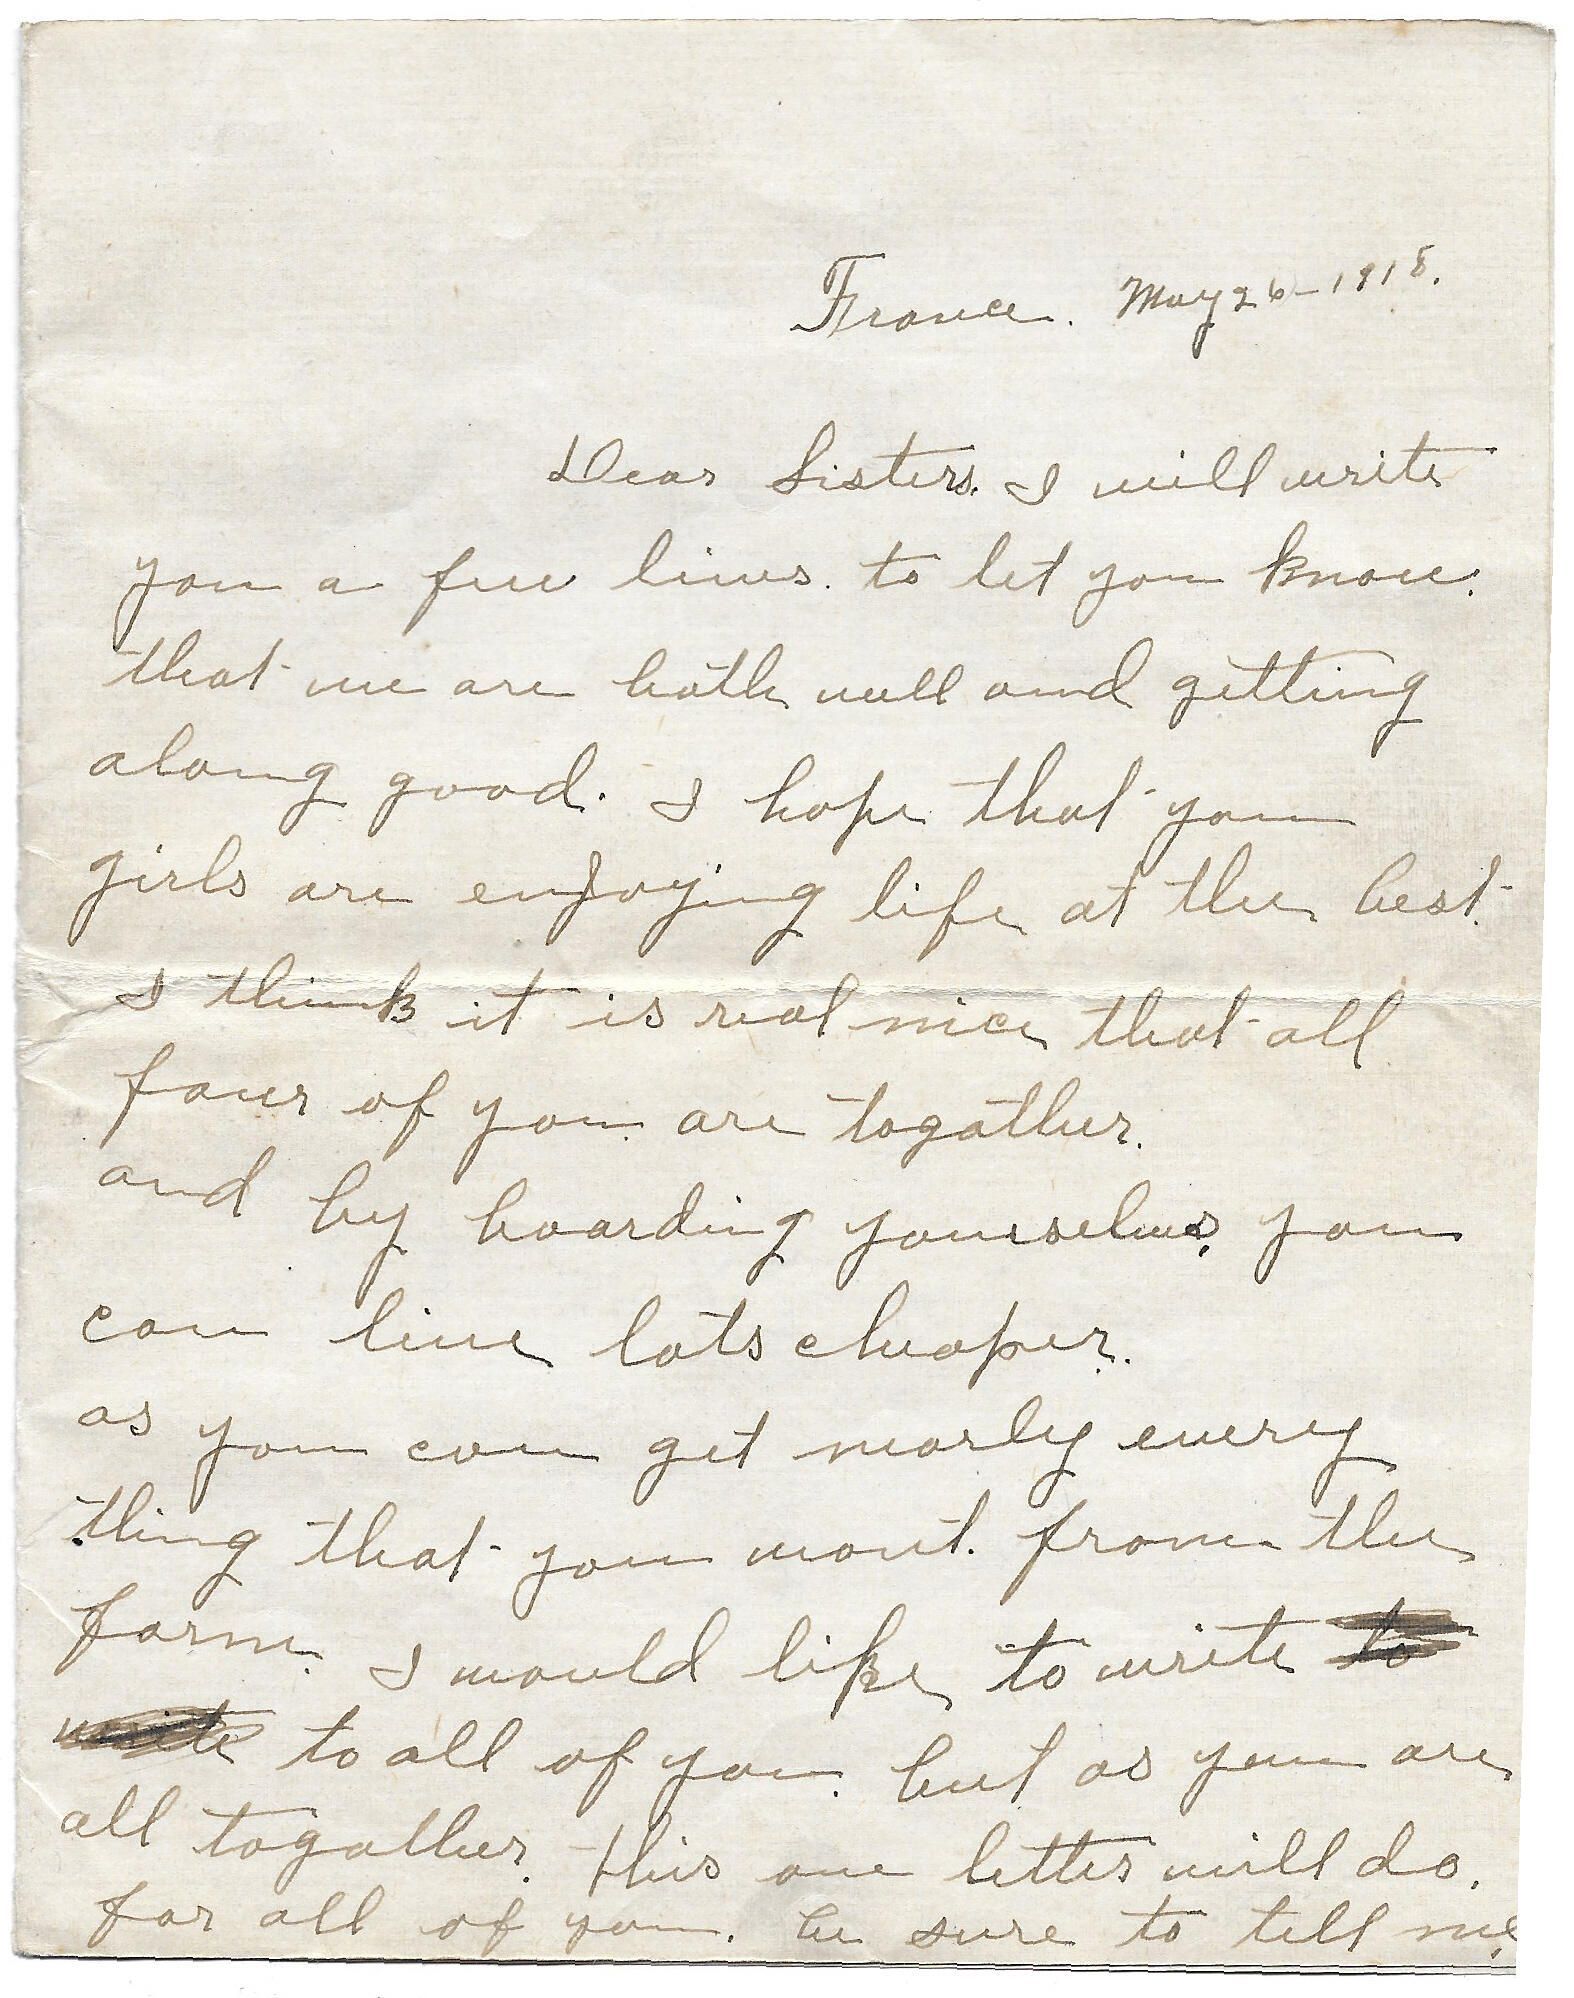 France. May 26-1918.
Dear Sisters. I will write
you a few lines. to let you know.
that we are both well and getting
along good. I hope that you
girls are enjoying life at the best.
I think it is real nice that all
four of you are togather.
and by boarding yourselves, you
can live lots cheaper.
as you can get nearly every
thing that you want. from the
farm. I would like to write to
write to all of you. but as you are
all togather. this one letter will do.
for all of you. be sure to tell me.